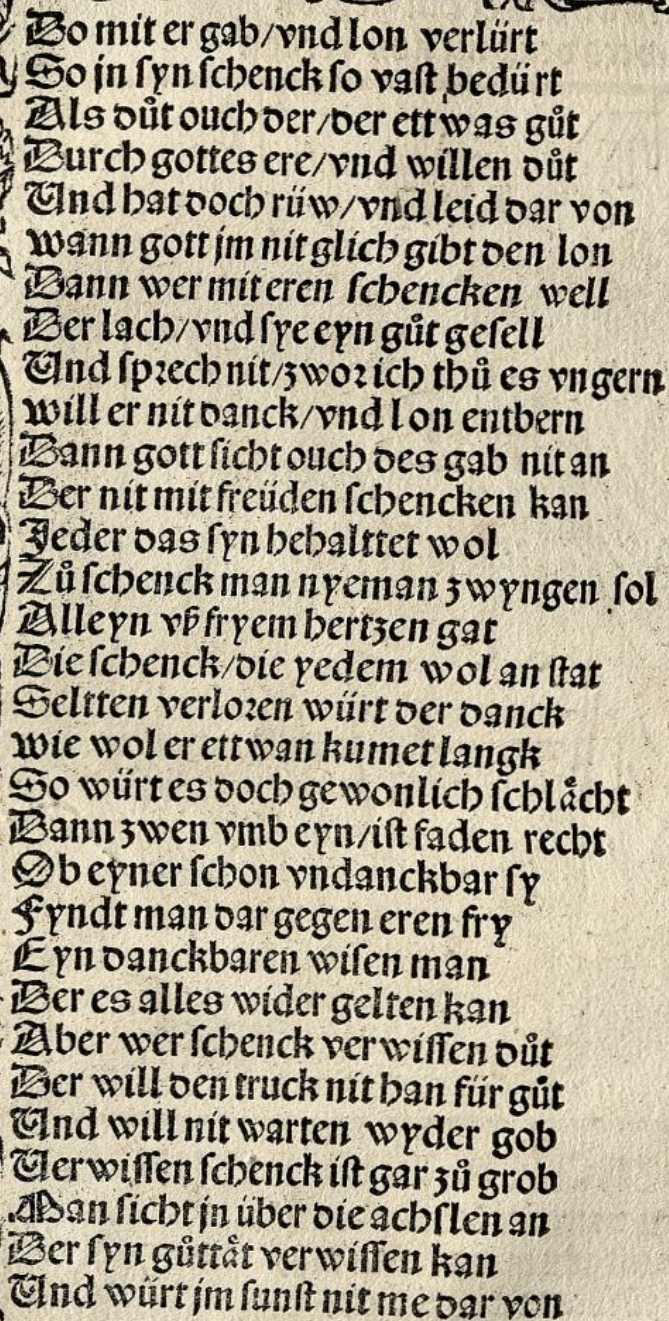 Do mit er gab/vnd lon verlürt
So jn ſyn ſchenck ſo vaſt bedürt
Als důt ouch der/der ettwas gůt
Durch gottes ere/vnd willen důt
Vnd hat doch rüw/vnd leid dar von
wann gott jm nit glich gibt den lon
Dann wer mit eren ſchencken well
Der lach/vnd ſye eyn gůt geſell
Vnd ſprech nit/zwor ich thů es vngern
will er nit danck/vnd lon entbern
Dann gott ſicht ouch des gab nit an
Der nit mit freüden ſchencken kan
Jeder das ſyn behalttet wol
Zů ſchenck man nyeman zwyngen ſol
Alleyn vß fryem hertzen gat
Die ſchenck/die yedem wol an ſtat
Seltten verloren würt der danck
wie wol er ettwan kumet langk
So würt es doch gewonlich ſchlaͤcht
Dann zwen vmb eyn/iſt faden recht
Ob eyner ſchon vndanckbar ſy
Fyndt man dar gegen eren fry
Eyn danckbaren wiſen man
Der es alles wider gelten kan
Aber wer ſchenck verwiſſen důt
Der will den truck nit han für gůt
Vnd will nit warten wyder gob
Verwiſſen ſchenck iſt gar zů grob
Man ſicht jn über die achſlen an
Der ſyn gůttaͤt verwiſſen kan
Vnd würt jm ſunſt nit me dar von